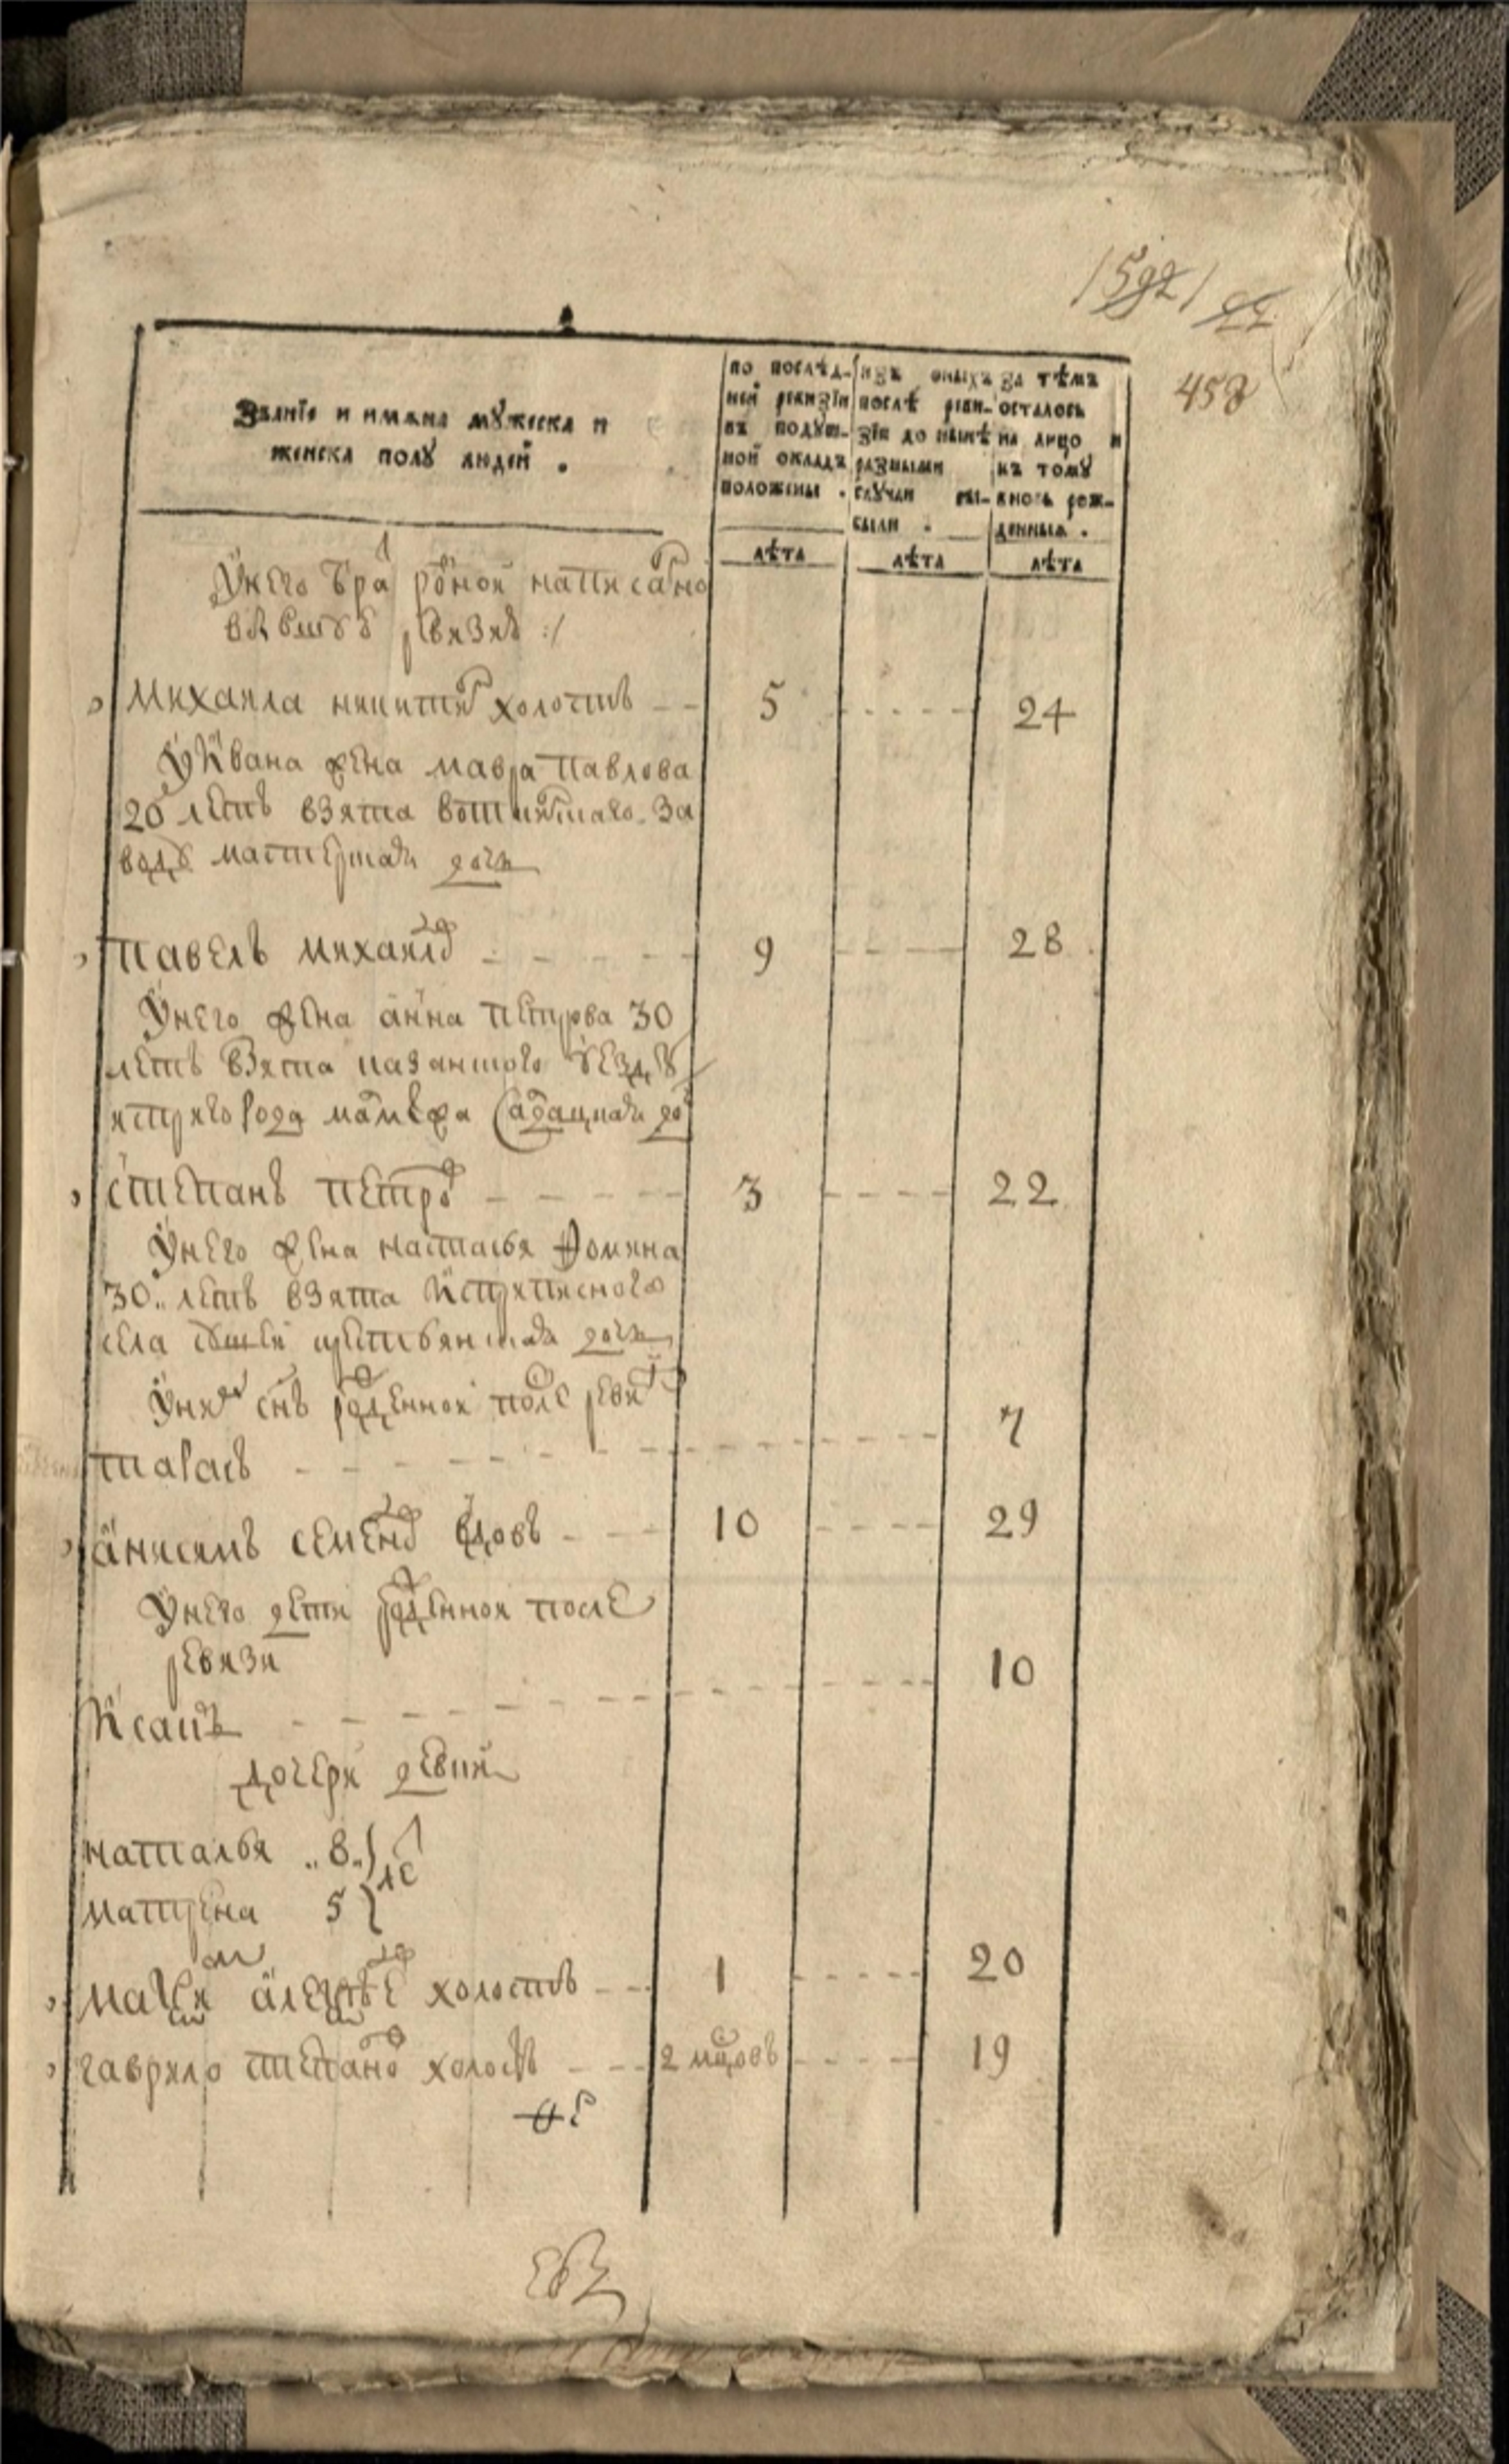 458
Званїе и имяна мꙋжеска и
женска полꙋ людей .
по послѣд-
ней ревизїи
въ подꙋш-
ной окладъ
положены .
изъ оныхъ
послѣ реви-
зїи до нынѣ
разными
слꙋчаи вы-
были .
За тѣмъ
осталось
на лицо и
къ томꙋ
вновь рож-
денныя .
лѣта лѣта лѣта
Ꙋнего бра родной написано
ревизиі :/
Михаила никитинъ холостъ 5 24
Ꙋ Ивана жена мавра павлова
20 летъ взята воткинского за
водꙋ мастерская дочь
павелъ михаиловъ 9 28
Ꙋнего жена анна петрова 30
летъ взята казанского ꙋездꙋ
степанъ петровъ 3 22
Ꙋнего жена настасья Ѳомина
30 летъ взята
села крестьянская дочь
Ꙋних снъ рожденной после ревизиі
тарасъ 7
анисимъ семеновъ вдовъ 10 29
Ꙋнего дети рожденной после
ревизи
Исакъ 10
дочери девки
наталья 8 ле
матрена 5
маѯим алеѯѣев холостъ 1 20
гаврило степановъ холостъ 2 мцовъ 19